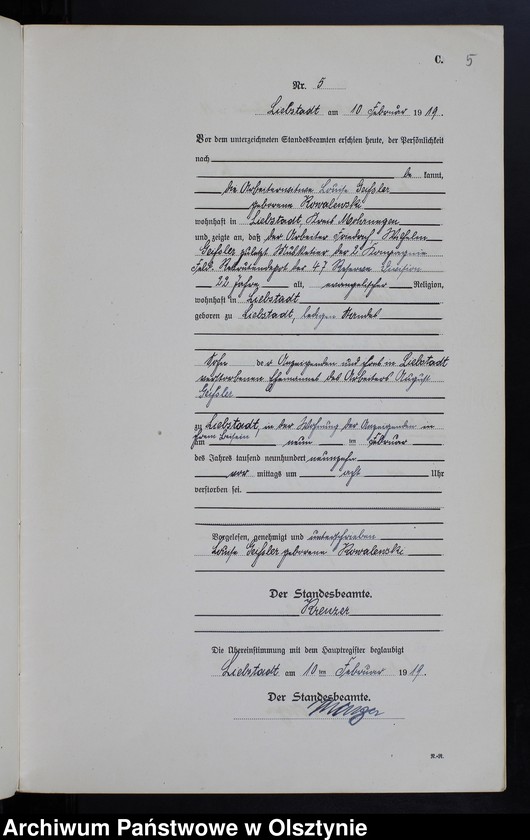 C. 5
Nr. 5
Liebstadt am 10 Februar 1919.
Vor dem unterzeichneten Standesbeamten erschien heute, der Persönlichkeit
nach
be kannt,
die Arbeiterwitwe Louise Geßler
geborene Kowalewski
wohnhaft in Liebstadt, Kreis Mohrungen
und zeigte an, daß der Arbeiter Friedrich Wilhelm
Geßler zuletzt Musketier der 2 Kompagnie
Feld Rekrutendepot der 47 Reserve Division
22 Jahre alt, evangelischer Religion,
wohnhaft in Liebstadt
geboren zu Liebstadt, ledigen Standes
Sohn der Anzeigenden und ihres in Liebstadt
verstorbenen Ehemannes des Arbeiters August
Geßler
zu Liebstadt, in der Wohnung der Anzeigenden in
ihrem Beisein
am neun ten Februar
des Jahres tausend neunhundert neunzehn
vor mittags um acht Uhr
verstorben sei.
Vorgelesen, genehmigt und unterschrieben
Louise Geßler geborene Kowalewski
Der Standesbeamte.
Krenzer
Die Übereinstimmung mit dem Hauptregister beglaubigt
Liebstadt am 10 ten Februar 1919.
Der Standesbeamte.
Krenzer
R.-R.
Archiwum Państwowe w Olsztynie